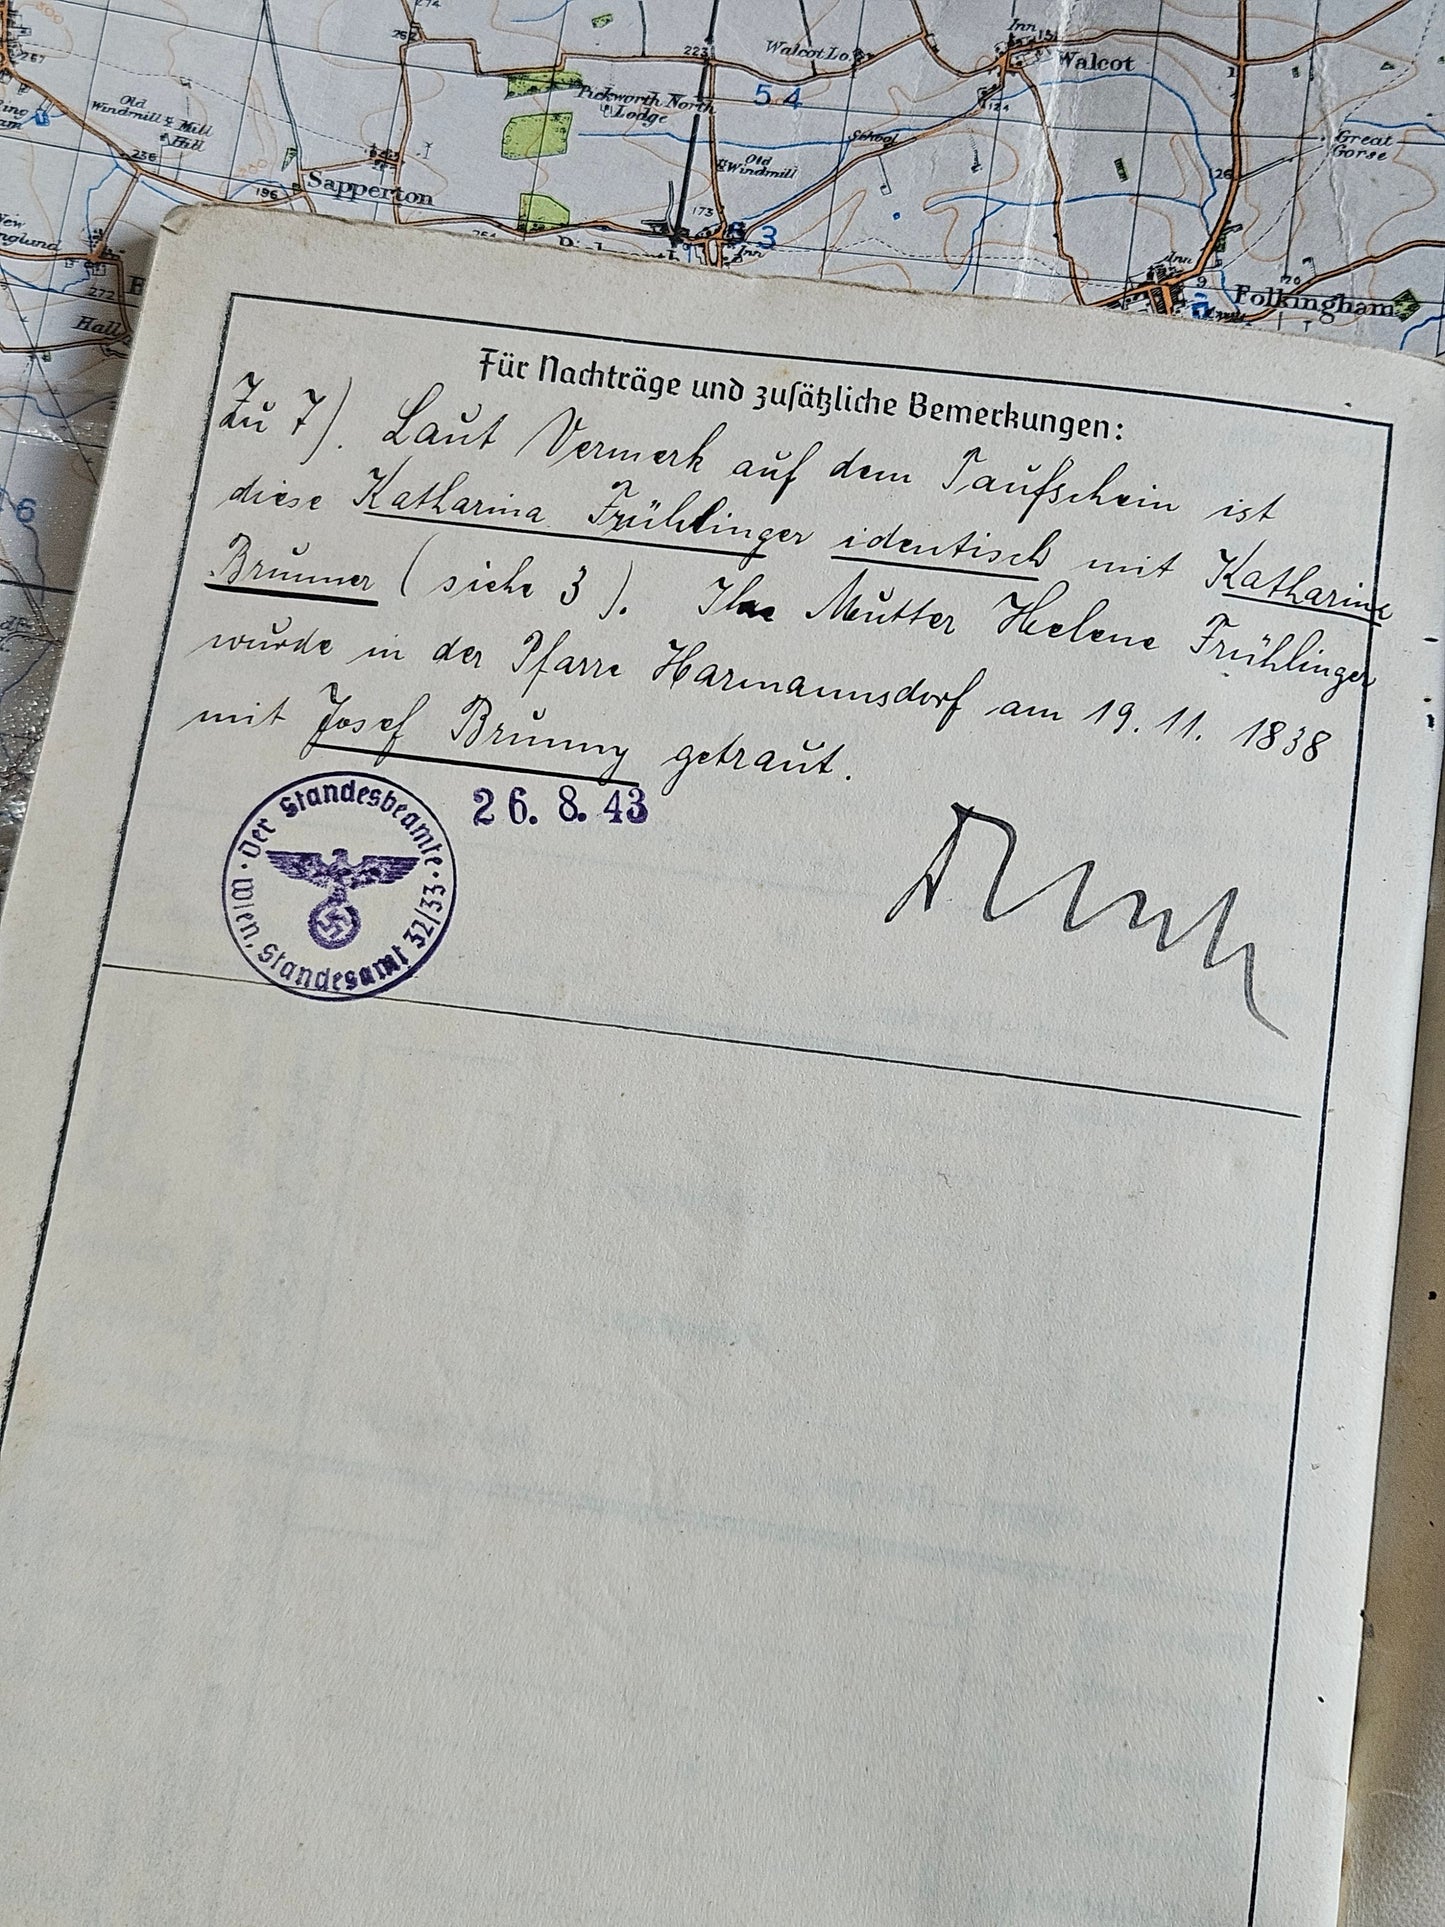 274
262
267
223
Walcot Lo.
Inn
151
Walcot
124
54
Pickworth North
Lodge
Old
Windmill & Mill
Hill
236
School
Great
Gorse
Old
Windmill
126
Sapperton
196
173
63
Inn
Inn
70
Folkingham
9
272
Hall
6
Für Nachträge und zusätzliche Bemerkungen:
Zu 7). Laut Vermerk auf dem Taufschein ist
diese Katharina Frühlinger identisch mit Katharine
Brunner (siehe 3). Ihre Mutter Helene Frühlinger
wurde in der Pfarre Harmannsdorf am 19. 11. 1838
mit Josef Brunny getraut.
26. 8. 43
Der Standesbeamte
Wien, Standesamt 32/33